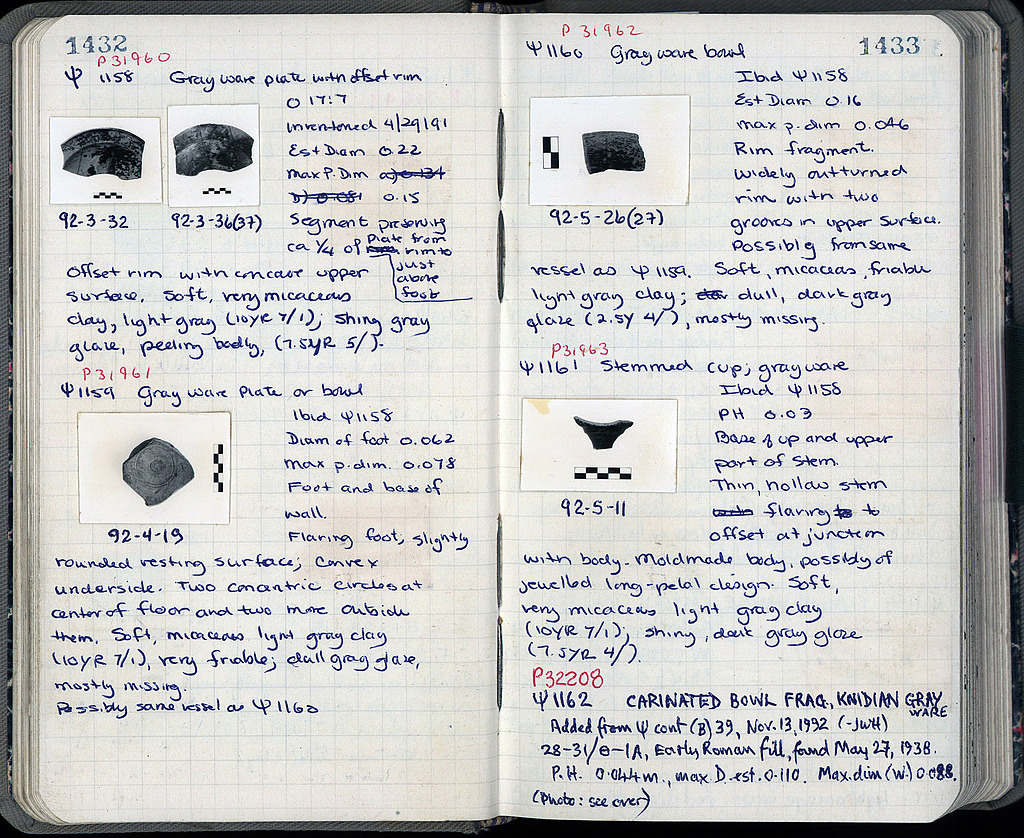 1432
P 31960
Ψ 1158 Gray ware plate with offset rim
O 17:7
inventoried 4/29/91
Est Diam 0.22
max P. Dim a) 0.134
b) 0.081 0.15
Segment preserving
ca 1/4 of plate from
rim to
just
above
foot
offset rim with concave upper
surface. Soft, very micaceous
clay, light gray (10YR 7/1); shiny gray
glaze, peeling badly, (7.5YR 5/).
92-3-32 92-3-36(37)
P 31961
Ψ1159 Gray ware plate or bowl
Ibid Ψ1158
Diam of foot 0.062
max p. dim. 0.078
Foot and base of
wall.
Flaring foot, slightly
92-4-19
rounded resting surface; convex
underside. Two concentric circles at
center of floor and two more outside
them. Soft, micaceous light gray clay
(10YR 7/1), very friable; dull gray glaze,
mostly missing.
Possibly same vessel as Ψ1160
1433
P 31962
Ψ1160 Gray ware bowl
Ibid Ψ1158
Est Diam 0.16
max p. dim 0.046
Rim fragment.
Widely outturned
rim with two
grooves in upper surface.
Possibly from same
92-5-26(27)
vessel as Ψ1159. Soft, micaceous, friable
light gray clay; dull, dark gray
glaze (2.5Y 4/), mostly missing.
P31963
Ψ1161 Stemmed cup; gray ware
Ibid Ψ1158
PH 0.03
Base of cup and upper
part of stem.
Thin, hollow stem
flaring to
offset at junction
92-5-11
with body. Moldmade body, possibly of
jewelled long-petal design. Soft,
very micaceous light gray clay
(10YR 7/1); shiny, dark gray glaze
(7.5YR 4/).
P32208
Ψ1162 CARINATED BOWL FRAG., KNIDIAN GRAY
WARE
Added from Ψ cont (B) 39, Nov. 13, 1992 (-JWH)
28-31/Θ-1A, Early Roman fill, found May 27, 1938.
P.H. 0.044 m., max D. est. 0.110. Max. dim (W.) 0.088.
(Photo: see over)